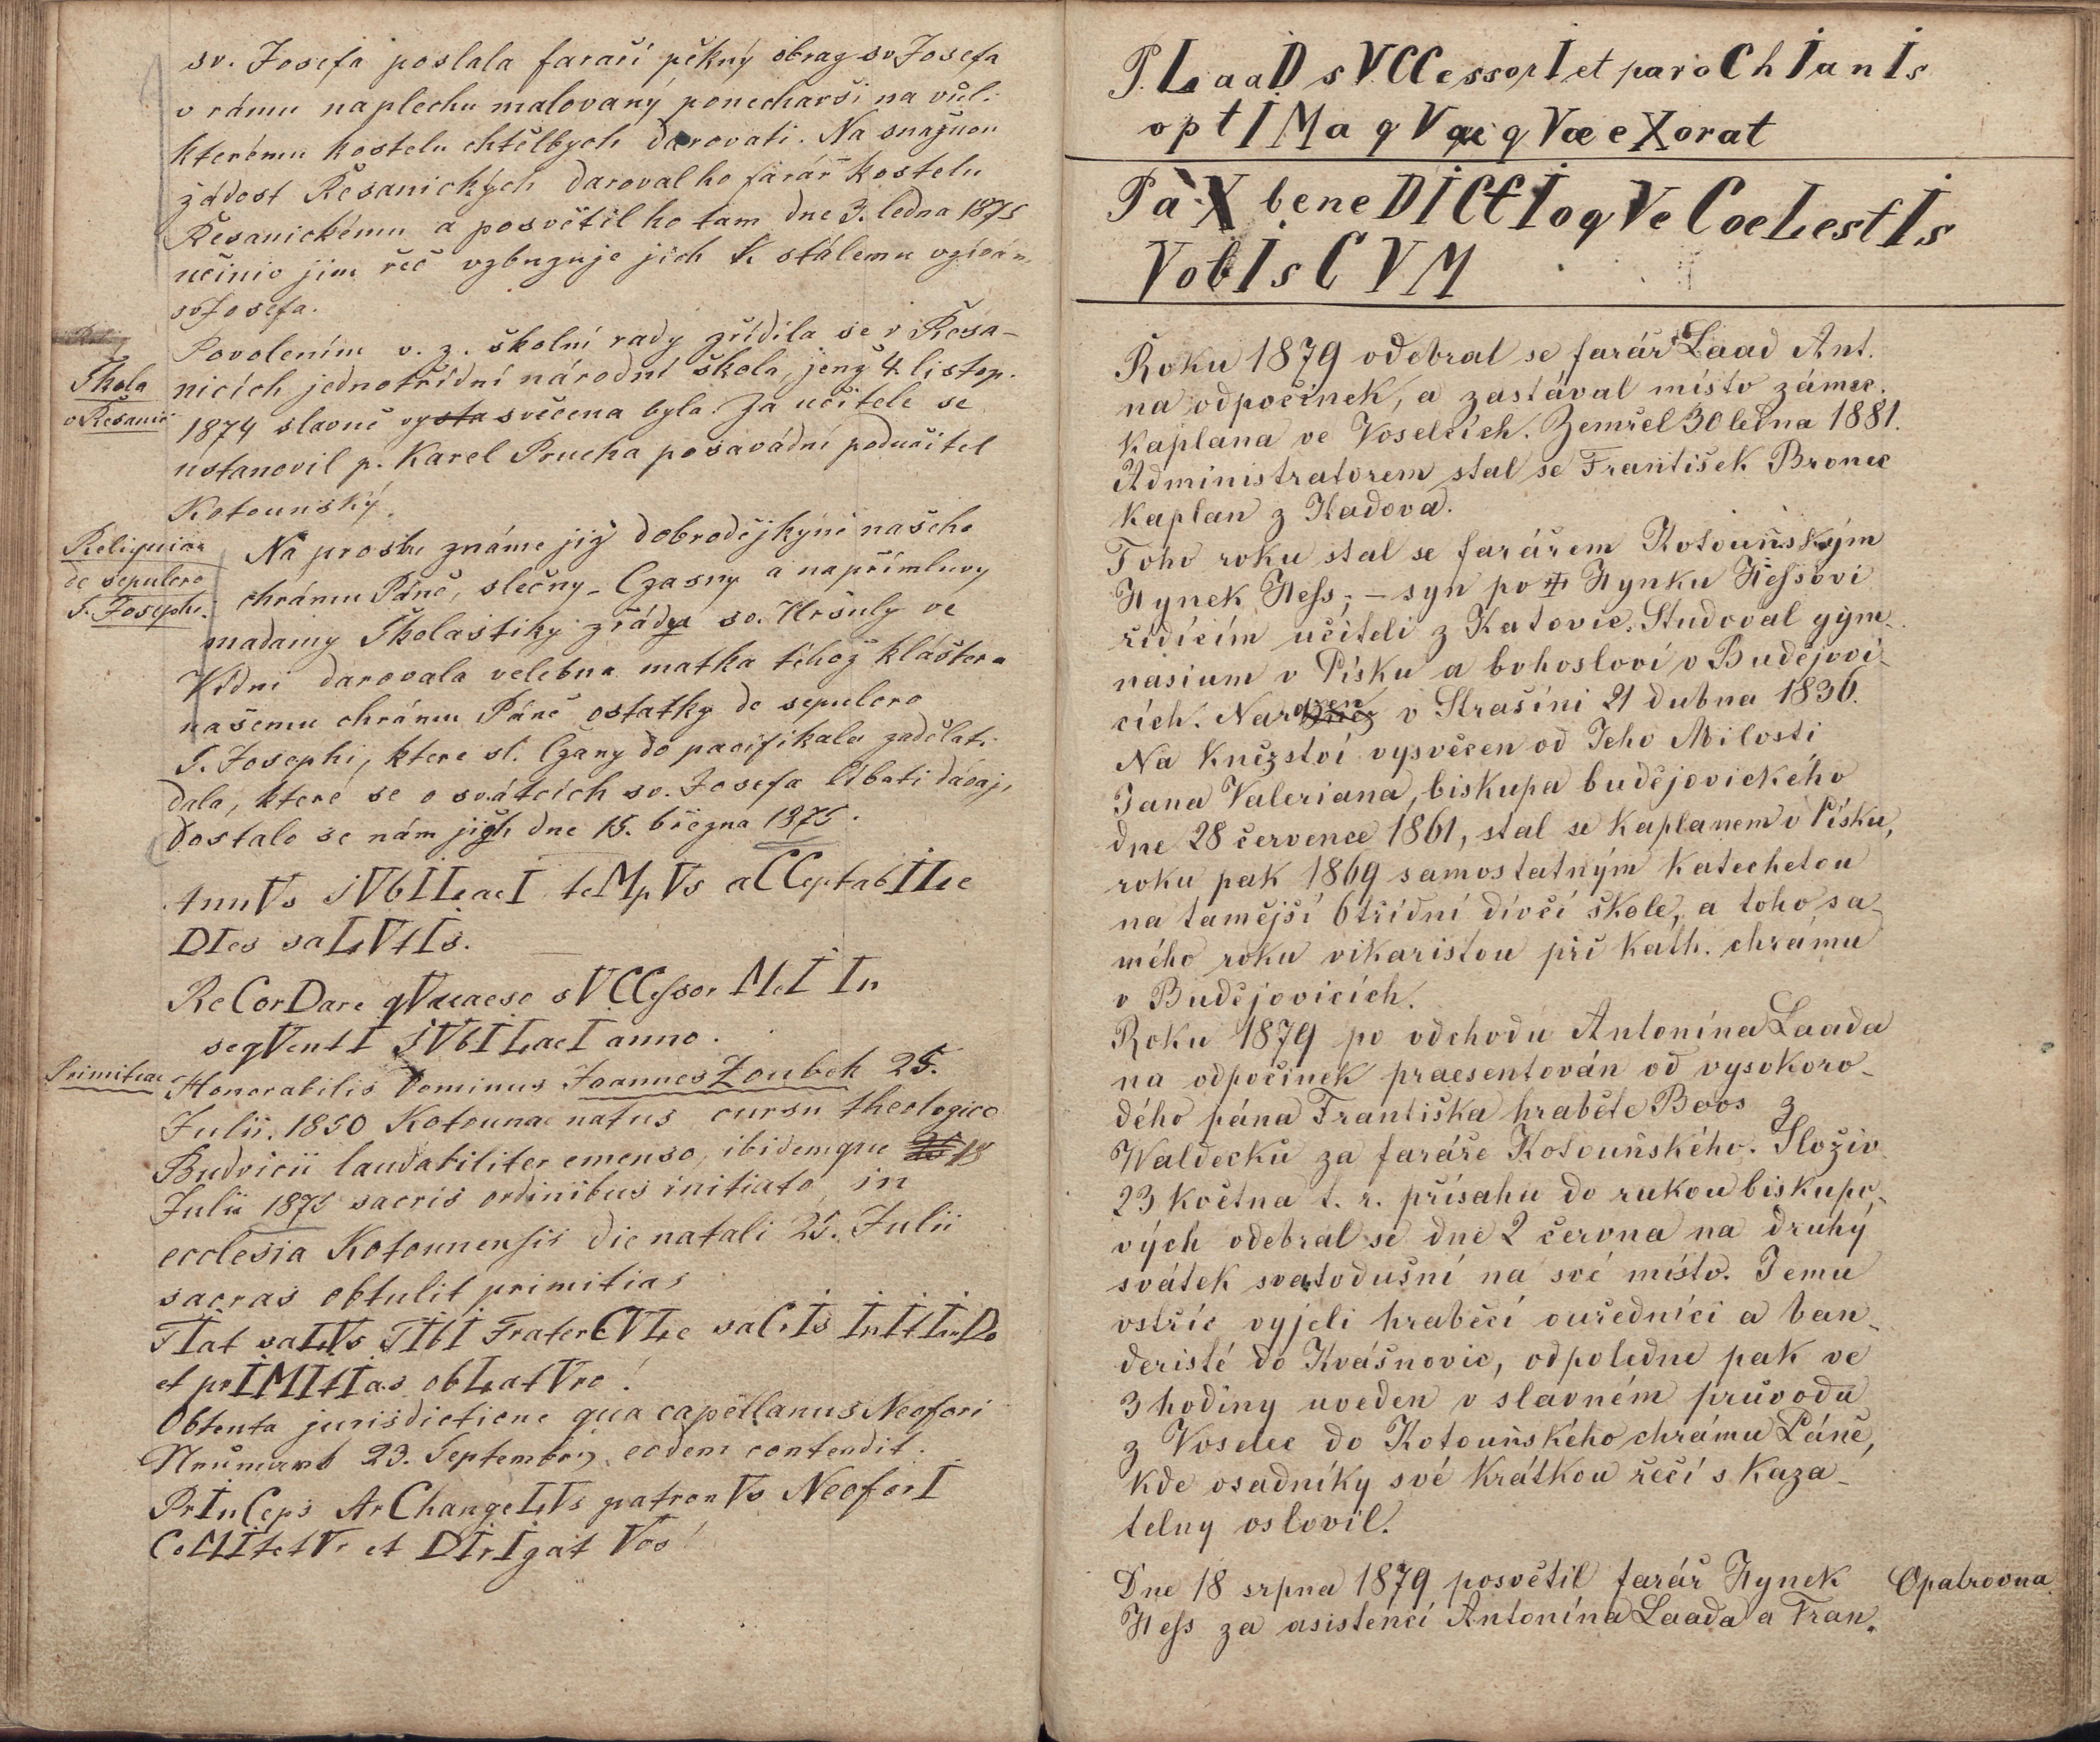 sv. Josefa poslala faraři pěkný obraz sv Josefa
v rámu na plechu malovaný ponechavši na vůli
kterému kostelu chtělbych darovati. Na snažnou
žádost Řesanických daroval ho farář kostelu
Řesanickému a posvětil ho tam dne 3. ledna 1875
učiniv jim řeč vzbuzuje jich k stálemu vzíván
sv Josefa.
Povolením v. z. školní rady zřídila se v Řesa-
Škola
v Řesanic
nicích jednotřídní národní škola, jenž 4. listop.
1874 slavně vysta svěcena byla. Za učitele se
ustanovil p. Karel Prucha posavádní podučitel
Kotounský.
Reliquiae
de sepulcro
S. Josephi.
Na prosbu známé již dobrodějkyně našeho
chrámu Páně, slečny Czasny a na přímluvy
madamy Školastiky z řádu sv. Uršuly ve
Vídni darovala velebna matka téhož kláštera
našemu chrámu Páně ostatky de sepulcro
S. Josephi, ktere sl. Czany do pacifikalu zadělati
dala, které se o svátcích sv. Josefa líbati dávaj,
Dostalo se nám jich dne 15. března 1875.
AnnVs IVbILaeI teMpVs aCCeptabILe
DIes saLVtIs.
ReCorDare qVaeso sVCCessor MeI In
seqVentI IVbILaeI anno.
Primitiae
Honorabilis Dominus Joannes Zoubek 25.
Julii. 1850 Kotounae natus cursu theologico
Budvicii laudabiliter emenso, ibidemque 18
Julii 1875 sacris ordinibus initiato in
ecclesia Kotounensis die natali 25. Julii
sacras obtulit primitias
FIat saLVs TIbI FraterCVLe saCrIs InItIanDo
et prIMItIas obLatVro!
Obtenta jurisdictione qua capellanus Neofori
Neumark 23. Septembris eodem contendit.
PrInCeps ArChangeLVs patronVs NeoforI
CoMItetVr et DIrIgat Vos!
P. LaaD sVCCessorI et paroChIanIs
optIMa qVaeqVae eXorat
PaX beneDICtIoqVe CoeLestIs
VobIsCVM
Roku 1879 odebral se farář Laad Ant.
na odpočinek, a zastával místo zámec.
kaplana ve Voselcích. Zemřel 30 ledna 1881.
Administratorem stal se František Bronec
kaplan z Kadova.
Toho roku stal se farářem Kotouňským
Hynek Hess; – syn po † Hynku Hessovi
řídícím učiteli z Katovic. Studoval gym-
nasium v Písku a bohosloví v Budějovi-
cích. Narozen v Strašíni 21 dubna 1836.
Na kněžství vysvěcen od Jeho Milosti
Jana Valeriana, biskupa budějovického
dne 28 července 1861, stal se kaplanem v Písku,
roku pak 1869 samostatným katechetou
na tamější 6třídní dívčí škole, a toho sa-
mého roku vikaristou při kath. chrámu
v Budějovicích.
Roku 1879 po odchodu Antonína Laada
na odpočinek praesentován od vysokoro-
dého pána Františka hraběte Boos z
Waldecků za faráře Kotouňského. Složiv
23 května t. r. přísahu do rukou biskupo-
vých odebral se dne 2 června na druhý
svátek svatodušní na své místo. Jemu
vstříc vyjeli hraběcí ouředníci a ban-
deristé do Kvášnovic, odpoledne pak ve
3 hodiny uveden v slavném průvodu
z Voselec do Kotouňského chrámu Páně,
kde osadníky své krátkou řečí s kaza-
telny oslovil.
Dne 18 srpna 1879 posvětil farář Hynek
Opatrovna
Hess za asistencí Antonína Laada a Fran.